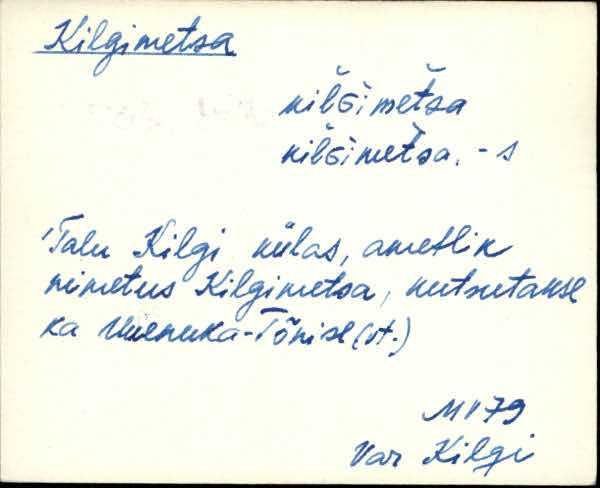 Kilgimetsa
kilGimetsa
kilGimetsa, -s
Talu Kilgi külas, ametlik
nimetus Kilgimetsa, kutsutakse
ka Uuenuka-Tõnise (vt.)
M" 79
Var Kilgi